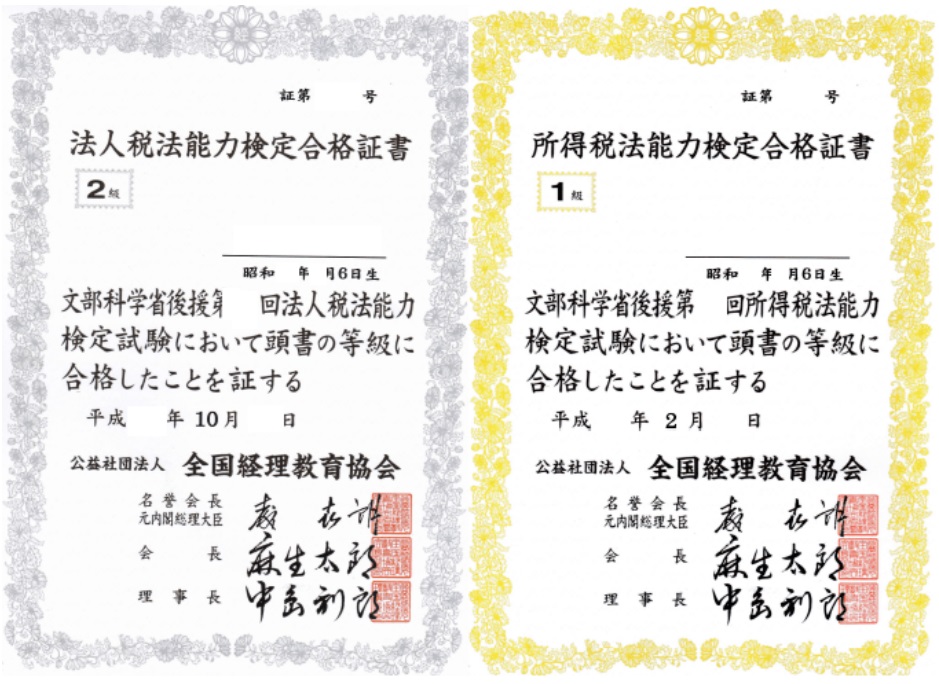 証第 号
法人税法能力検定合格証書
2級
昭和 年 月6日生
文部科学省後援第 回法人税法能力
検定試験において頭書の等級に
合格したことを証する
平成 年 10月 日
公益社団法人 全国経理教育協会
名誉会長
元内閣総理大臣
会長 麻生太郎
理事長 中島利郎
証第 号
所得税法能力検定合格証書
1級
昭和 年 月6日生
文部科学省後援第 回所得税法能力
検定試験において頭書の等級に
合格したことを証する
平成 年 2月 日
公益社団法人 全国経理教育協会
名誉会長
元内閣総理大臣
会長 麻生太郎
理事長 中島利郎